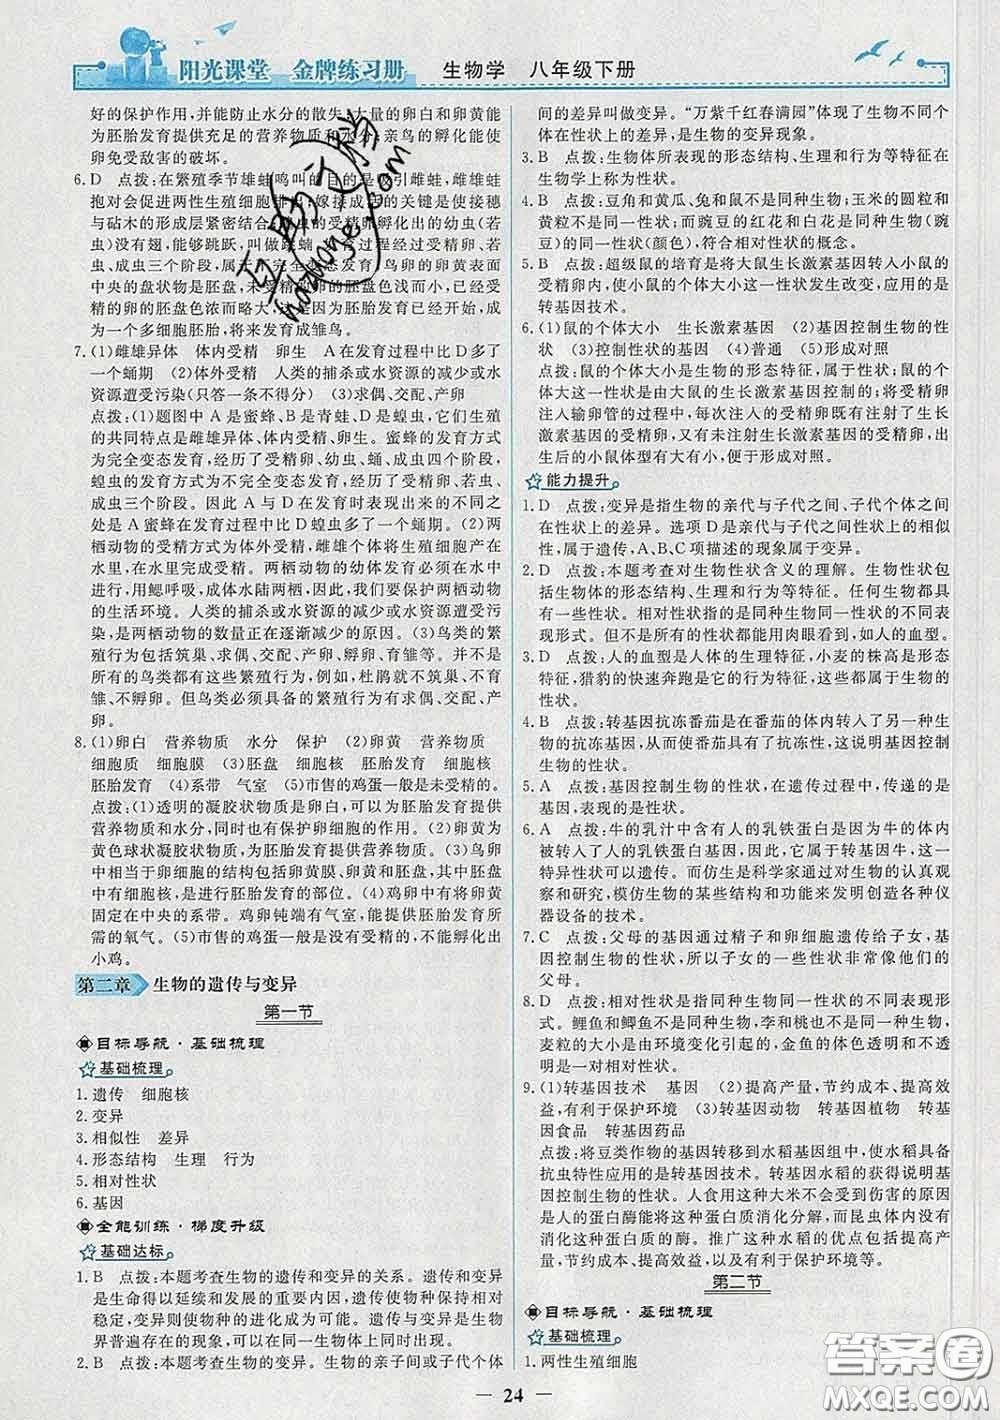 阳光课堂 金牌练习册 生物学 八年级下册
好的保护作用,并能防止水分的散失;大量的卵白和卵黄能
为胚胎发育提供充足的营养物质和水分;亲鸟的孵化能使
卵免受敌害的破坏。
6. D 点拨:在繁殖季节雄蛙鸣叫的目的是吸引雌蛙,雌雄蛙
抱对会促进两性生殖细胞排出;嫁接成活的关键是使接穗
与砧木的形成层紧密结合;由受精卵孵化出的幼虫(若
虫)没有翅,能够跳跃,叫做跳蝻,发育过程经过受精卵、若
虫、成虫三个阶段,属于不完全变态发育;鸟卵的卵黄表面
中央的盘状物是胚盘,未受精的卵的胚盘色浅而小,已
受精的卵的胚盘色浓而略大,这是因为胚胎发育已经开始,成
为一个多细胞胚胎,将来发育成雏鸟。
7. (1)雌雄异体 体内受精 卵生 A在发育过程中比D多了
一个蛹期 (2)体外受精 人类的捕杀或水资源的减少或水
资源遭受污染(只答一条不得分) (3)求偶、交配、产卵
点拨:(1)题图中A是蜜蜂、B是青蛙、D是蝗虫,它们生殖
的共同特点是雌雄异体、体内受精、卵生。蜜蜂的发育方式
为完全变态发育,经历了受精卵、幼虫、蛹、成虫四个阶段,蝗
虫的发育方式为不完全变态发育,经历了受精卵、若虫、成
虫三个阶段。因此A与D在发育时表现出来的不同之
处是A蜜蜂在发育过程中比D蝗虫多了一个蛹期。(2)两
栖动物的受精方式为体外受精,雌雄个体将生殖细胞产在
水里,在水里完成受精。两栖动物的幼体发育必须在水中
进行,用鳃呼吸,成体水陆两栖,所以我们要保护两栖动物
的生活环境。人类的捕杀或水资源的减少或水资源遭受污
染,是两栖动物的数量正在逐渐减少的原因。(3)鸟类的繁
殖行为包括筑巢、求偶、交配、产卵、孵卵、育雏等。并不是
所有的鸟类都有这些繁殖行为,例如,杜鹃就不筑巢、不育
雏、不孵卵。但鸟类必须具备的繁殖行为有求偶、交配、产
卵。
8. (1)卵白 营养物质 水分 保护 (2)卵黄 营养物质
细胞质 细胞膜 (3)胚盘 细胞核 胚胎发育 细胞核
胚胎发育 (4)系带 气室 (5)市售的鸡蛋一般是未受精的。
点拨:(1)透明的凝胶状物质是卵白,可以为胚胎发育提供
营养物质和水分,同时也有保护卵细胞的作用。(2)卵黄为
黄色球状凝胶状物质,为胚胎发育提供营养物质。(3)鸡卵
中相当于卵细胞的结构包括卵黄膜、卵黄和胚盘,其中胚盘
中有细胞核,是进行胚胎发育的部位。(4)鸡卵中有将卵黄
固定在中央的系带。鸡卵钝端有气室,能提供胚胎发育所
需的氧气。(5)市售的鸡蛋一般是没有受精的,不能孵化出
小鸡。
第二章 生物的遗传与变异
第一节
目标导航·基础梳理
基础梳理
1. 遗传 细胞核
2. 变异
3. 相似性 差异
4. 形态结构 生理 行为
5. 相对性状
6. 基因
全能训练·梯度升级
基础达标
1. B 点拨:本题考查生物的遗传和变异的关系。遗传和变异
是生命得以延续和发展的重要内因,遗传使物种保持相对
稳定,变异则使物种的进化成为可能。遗传与变异是生物
界普遍存在的现象,可以在同一生物体上同时出现。
2. B 点拨:本题考查生物的变异。生物的亲子间或子代个体
间的差异叫做变异。“万紫千红春满园”体现了生物不同个
体在性状上的差异,是生物的变异现象。
3. B 点拨:生物体所表现的形态结构、生理和行为等特征在
生物学上称为性状。
4. B 点拨:豆角和黄瓜、兔和鼠不是同种生物;玉米的圆粒和
黄粒不是同一性状;而豌豆的红花和白花是同种生物(豌
豆)的同一性状(颜色),符合相对性状的概念。
5. B 点拨:超级鼠的培育是将大鼠生长激素基因转入小鼠的
受精卵内,使小鼠的个体大小这一性状发生改变,应用的是
转基因技术。
6. (1)鼠的个体大小 生长激素基因 (2)基因控制生物的性
状 (3)控制性状的基因 (4)普通 (5)形成对照
点拨:鼠的个体大小是生物的形态特征,属于性状,鼠的个
体大这一性状是由大鼠的生长激素基因控制的;将受精卵
注入输卵管的过程中,每次注入的受精卵既有导入生长激
素基因的受精卵,又有未注射生长激素基因的受精卵,出
生后的小鼠体型有大有小,便于形成对照。
能力提升
1. D 点拨:变异是指生物的亲代与子代之间、子代个体之间
在性状上的差异。选项D是亲代与子代之间性状上的相似
性,属于遗传,A、B、C项描述的现象属于变异。
2. D 点拨:本题考查对生物性状含义的理解。生物性状包
括生物体的形态结构、生理特征、行为特征等。任何生物都
具有一些性状。相对性状指的是同种生物同一性状的不同表
现形式。但不是所有的性状都能用肉眼看到,如人的血型。
3. D 点拨:人的血型是人体的生理特征,小麦的株高是形态特
征,猎豹的快速奔跑是它的行为特征,这些都是属于生物的
性状。
4. B 点拨:转基因抗冻番茄是在番茄的体内转入了另一种生
物的抗冻基因,使番茄具有了抗冻性,这说明基因控制
生物的性状。
5. A 点拨:基因控制生物的性状,在遗传过程中,传递的是
基因,表现的是性状。
6. A 点拨:牛的乳汁中含有人的乳铁蛋白是因为牛的体内转
入了人的乳铁蛋白基因,因此,它属于转基因牛,这一
特异性状可以遗传。而仿生是科学家通过对生物的认真观
察和研究,模仿生物的某些结构和功能来发明创造各种仪
器设备的技术。
7. C 点拨:父母的基因通过精子和卵细胞遗传给子女,基
因控制生物的性状,所以子女的一些性状非常像他们的
父母。
8. D 点拨:相对性状是指同种生物同一性状的不同表现形
式。鲤鱼和鲫鱼不是同种生物,李和桃也不是同种生物;
麦粒的大小是由环境变化引起的,金鱼的体色透明和不透明
是一对相对性状。
9. (1)转基因技术 基因 (2)提高产量,节约成本、提高效
益,有利于保护环境 (3)转基因动物 转基因植物 转基
因食品 转基因药品
点拨:将豆类作物的基因转移到水稻基因组中,使水稻具备
抗虫特性应用的是转基因技术。转基因水稻的获得说明基
因控制生物的性状。人食用这种大米不会受到伤害的原因
是人的蛋白酶能将这种蛋白质消化分解,而昆虫体内没有
消化这种蛋白质的酶。推广这种水稻的优点包括可以提高
产量,节约成本、提高效益,以及有利于保护环境等。
第二节
目标导航·基础梳理
基础梳理
1. 两性生殖细胞
24
答案圈
MXQE.COM